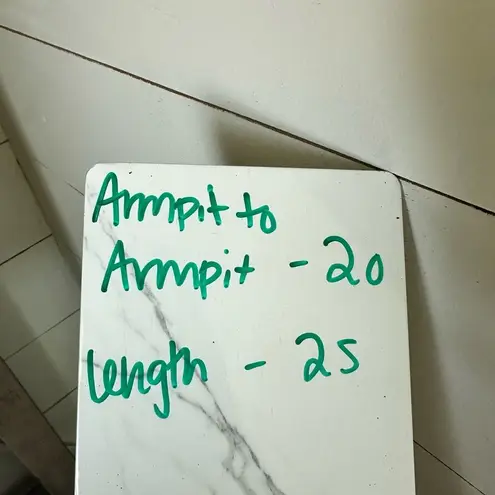 Armpit to
Armpit - 20
length - 25